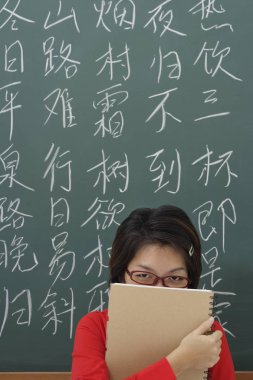 冬日平泉路晚归
山路难行日易斜
烟村霜树欲
夜归不到
热饮三杯即